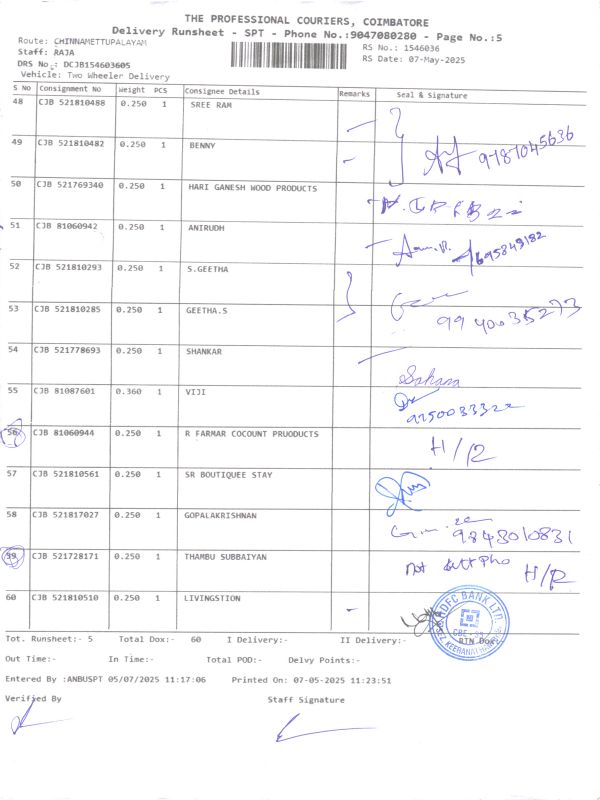 THE PROFESSIONAL COURIERS, COIMBATORE
Delivery Runsheet - SPT - Phone No.:9047080280 - Page No.:5
Route: CHINNAMETTUPALAYAM
RS No.: 1546036
Staff: RAJA
RS Date: 07-May-2025
DRS No.: DCJB154603605
Vehicle: Two Wheeler Delivery
S No Consignment No Weight PCS Consignee Details Remarks Seal & Signature
48 CJB 521810488 0.250 1 SREE RAM
49 CJB 521810482 0.250 1 BENNY 9787045636
50 CJB 521769340 0.250 1 HARI GANESH WOOD PRODUCTS
51 CJB 81060942 0.250 1 ANIRUDH
52 CJB 521810293 0.250 1 S.GEETHA
53 CJB 521810285 0.250 1 GEETHA.S 9940035273
54 CJB 521778693 0.250 1 SHANKAR
55 CJB 81087601 0.360 1 VIJI
56 CJB 81060944 0.250 1 R FARMAR COCOUNT PRUODUCTS H/R
57 CJB 521810561 0.250 1 SR BOUTIQUEE STAY
58 CJB 521817027 0.250 1 GOPALAKRISHNAN 9843010831
59 CJB 521728171 0.250 1 THAMBU SUBBAIYAN Not H/R
60 CJB 521810510 0.250 1 LIVINGSTION
HDFC BANK LTD.
Tot. Runsheet:- 5 Total Dox:- 60 I Delivery:- II Delivery:- RTN Dox
Out Time:- In Time:- Total POD:- Delvy Points:-
Entered By :ANBUSPT 05/07/2025 11:17:06 Printed On: 07-05-2025 11:23:51
Verified By Staff Signature